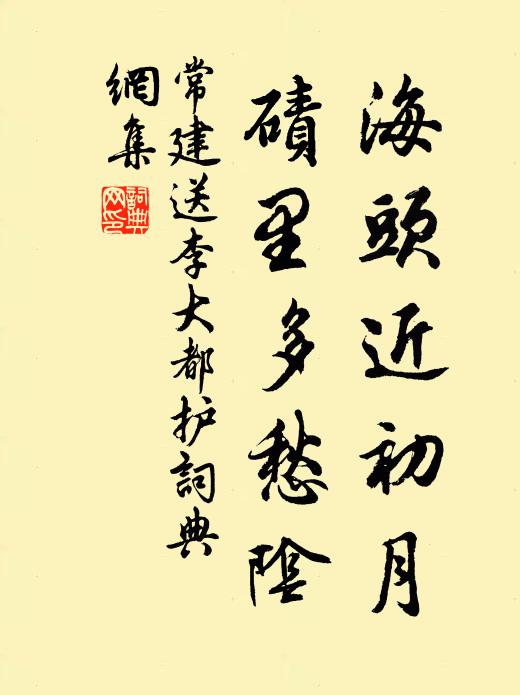 海頭近初月
磧里多愁陰
常建送李大都护詞典
網集
詞典網印